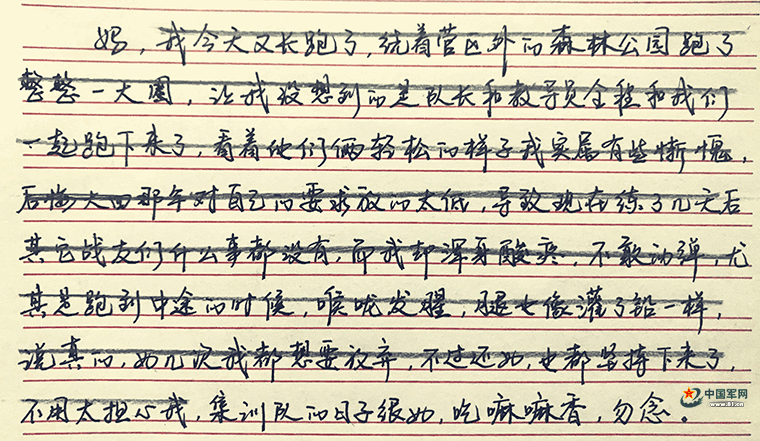 妈，我今天又长跑了，绕着营区外的森林公园跑了
整整一大圈，让我没想到的是队长和教导员全程和我们
一起跑下来了，看着他们俩轻松的样子我实属有些惭愧，
后悔大四那年对自己的要求放的太低，导致现在练了几天后
其它战友们什么事都没有，而我却浑身酸爽，不敢动弹，尤
其是跑到中途的时候，喉咙发腥，腿也像灌了铅一样，
说真的，好几次我都想要放弃，不过还好，也都坚持下来了，
不用太担心我，集训队的日子很好，吃嘛嘛香，勿念。
中国军网
www.81.cn